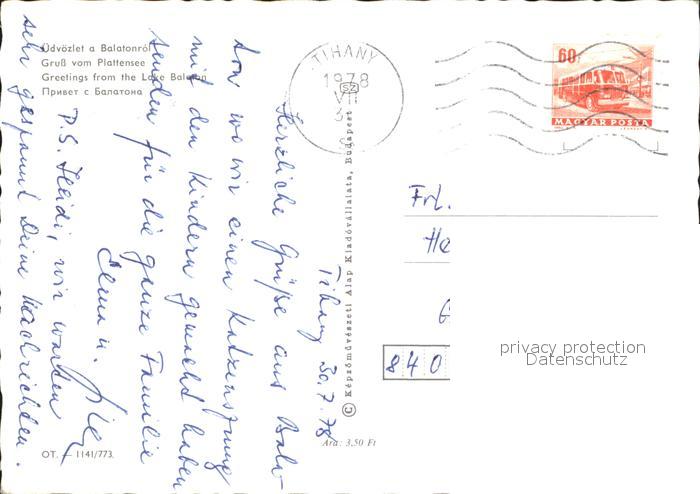 Üdvözlet a Balatonról
Gruß vom Plattensee
Greetings from the Lake Balaton
Привет с Балатона
Tihany 30.7.78
Herzliche Grüße aus Bala-
ton wo wir einen Katzensprung
mit den Kindern gemacht haben
senden für die ganze Familie
Elena u.
P.S. Heidi, wir warten
sehr gespannt Deine Nachrichten.
OT. — 1141/773.
© Képzőművészeti Alap Kiadóvállalata, Budapest
Ára: 3,50 Ft
TIHANY
1978
SZ
VII
60f
MAGYAR POSTA
Frl.
He
G
840
privacy protection
Datenschutz